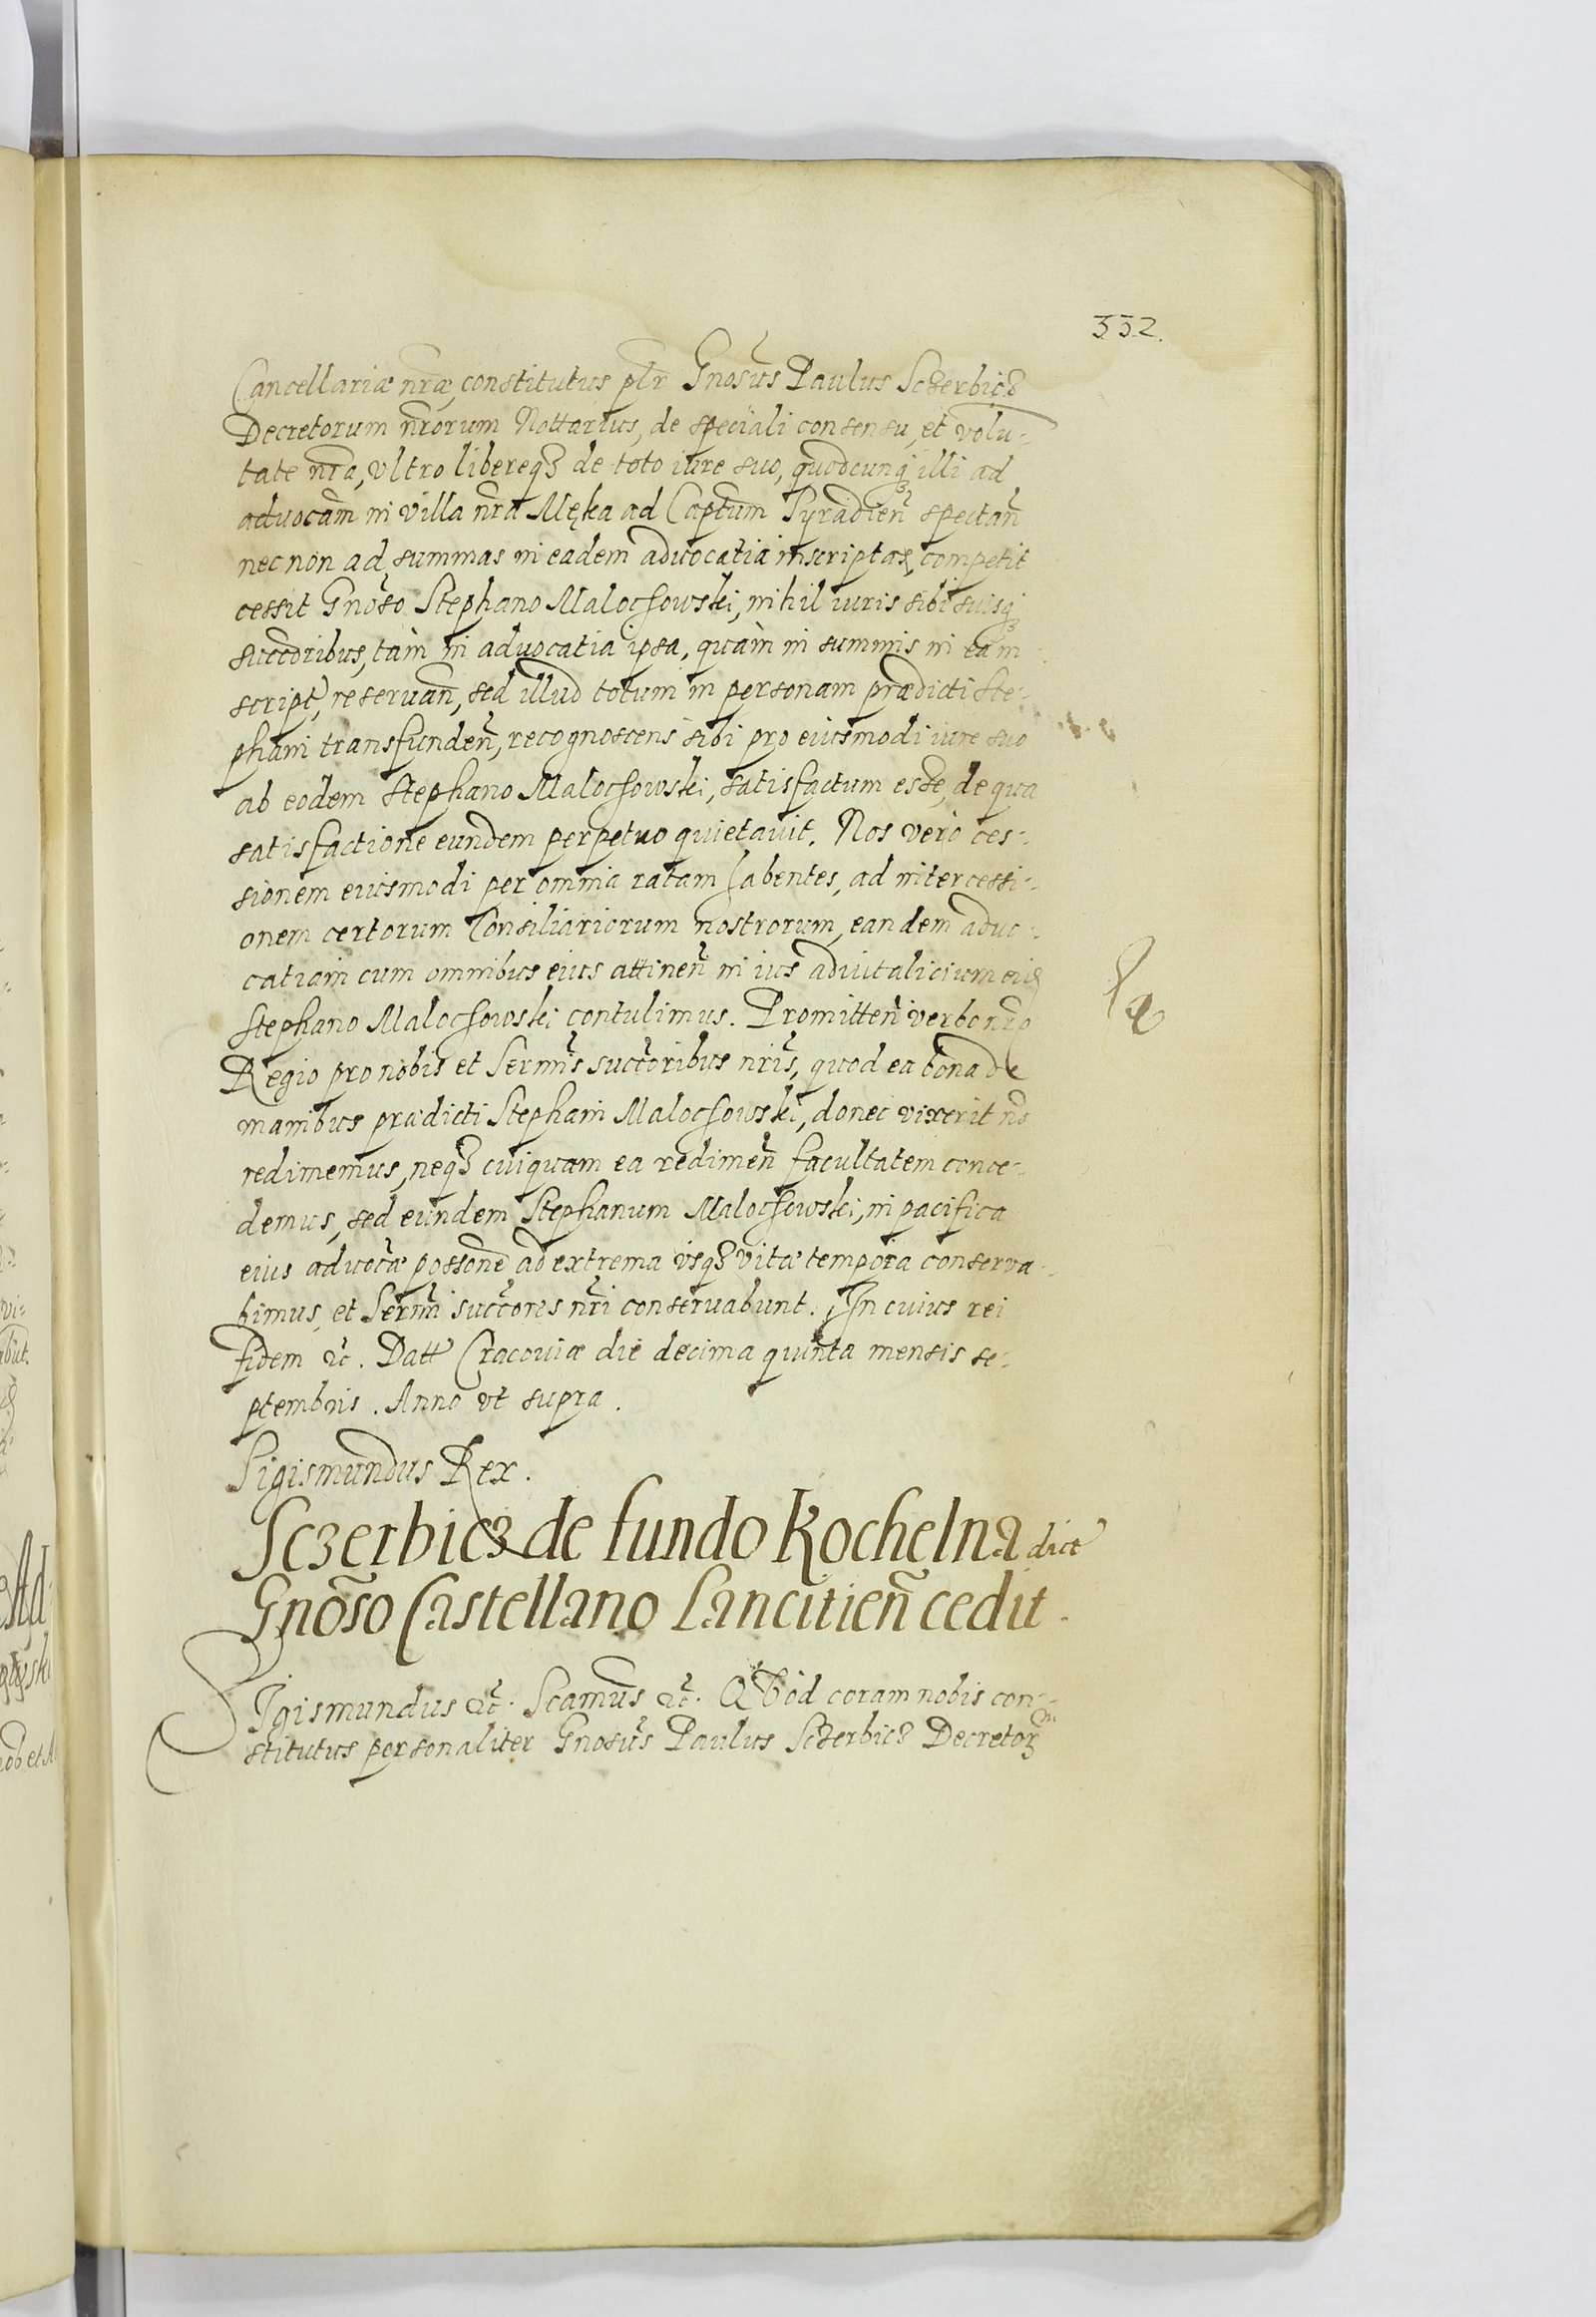 332.
Cancellariæ nr̃æ, constitutus plr̃ Gnosus̃ Paulus Sczerbicz
Decretorum nr̃orum Nottarius, de speciali consensu, et volu-
tate nr̃a, vltro libereqz de toto iure suo, quodcunqz illi ad
advocãm in villa nr̃a Męka ad Captum Syradien̄ spectan̄
necnon ad summas in eadem advocatia inscriptas, competit
cessit Gnõso Stephano Malochowski, nihil iuris sibi suisqz
succõribus, tàm in advocatia ipsa, quàm in summis in ea in
script, reservan̄, sed illud totum in personam prædicti Ste-
phani transfunden̄, recognoscens sibi pro eiusmodi iure suo
ab eodem Stephano Malochowski, satisfactum esse, de qua
satisfactione eundem perpetuo quietavit. Nos verò ces-
sionem eiusmodi per omnia ratam habentes, ad intercessi-
onem certorum Consiliariorum nostrorum, eandem advo-
catiam cum omnibus eius attinen̄ in ius advitalicium
Stephano Malochowski contulimus. Promitten̄ verbo nr̃o
Regio pro nobis et Sermĩs succ̃oribus nr̃is, quod ea bona de
manibus prædicti Stephani Malochowski, donec vixerit nõ
redimemus, neqz cuiquam ea redimen̄ facultatem conce-
demus, sed eundem Stephanum Malochowski, in pacifica
eius advocãæ possone ad extrema vsqz vitæ tempora conserva-
bimus, et Serm̃i succ̃ores nr̃i conservabunt. In cuius rei
fidem &c̃. Datt Cracoviæ die decima quinta mensis se-
ptembris. Anno vt supra.
Sigismundus Rex.
Sczerbicz de fundo Kochelna dict
Gnõso Castellano Lancitien̄ cedit.
Sigismundus &c̃. Scamus̃ &c̃. Quod coram nobis con-
stitutus personaliter Gnosus̃ Paulus Sczerbicz Decretor